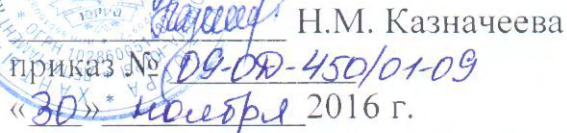 Н.М. Казначеева
приказ № 09-ОД-450/01-09
«30» ноября 2016 г.